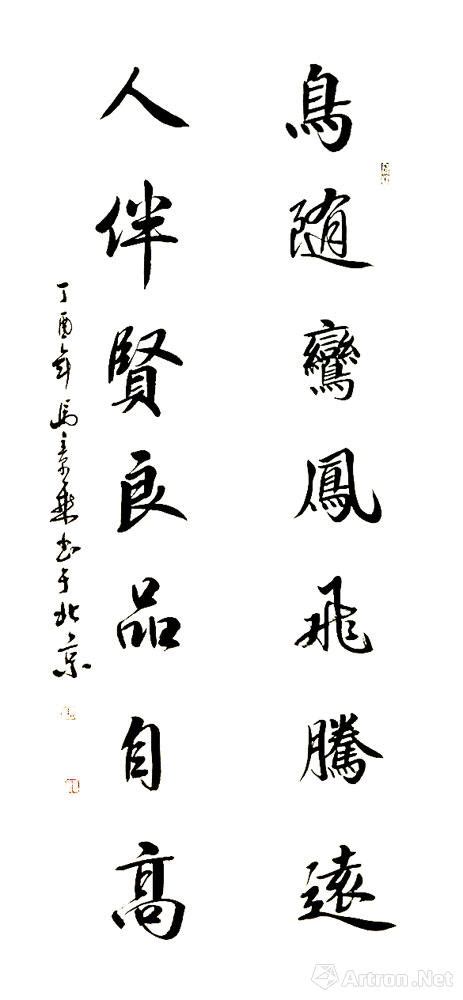 鳥随鸞鳳飛騰遠
人伴賢良品自高
丁酉年馬景乗书于北京
Artron.Net